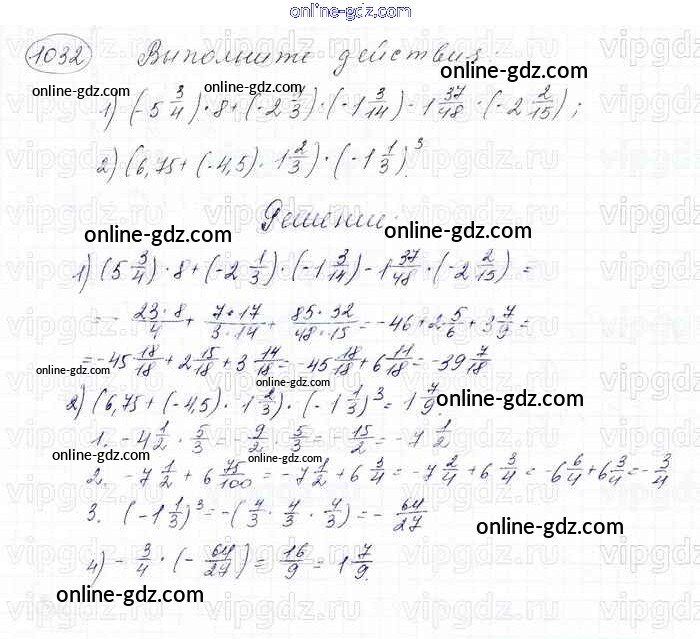 online-gdz.com
1032 Выполните действия.
online-gdz.com
1) (-5 3/4)·8+(-2 1/3)·(-1 3/14)-1 37/48·(-2 2/15);
online-gdz.com online-gdz.com
2) (6,75+(-4,5)·1 2/3)·(-1 1/3)³
Решение:
online-gdz.com online-gdz.com
1) (5 3/4)·8+(-2 1/3)·(-1 3/14)-1 37/48·(-2 2/15)=
=-23·8/4+7·17/3·14+85·32/48·15=-46+2 5/6+3 7/9=
=-45 18/18+2 15/18+3 14/18=-45 18/18+6 11/18=-39 7/18
online-gdz.com online-gdz.com
2) (6,75+(-4,5)·1 2/3)·(-1 1/3)³=1 7/9.
online-gdz.com
1. -4 1/2·5/3=-9/2·5/3=-15/2=-7 1/2
online-gdz.com online-gdz.com
2. -7 1/2+6 75/100=-7 1/2+6 3/4=-7 2/4+6 3/4=-6 6/4+6 3/4=-3/4
3. (-1 1/3)³=-(4/3·4/3·4/3)=-64/27
online-gdz.com
4) -3/4·(-64/27)=16/9=1 7/9.
online-gdz.com
vipgdz.com